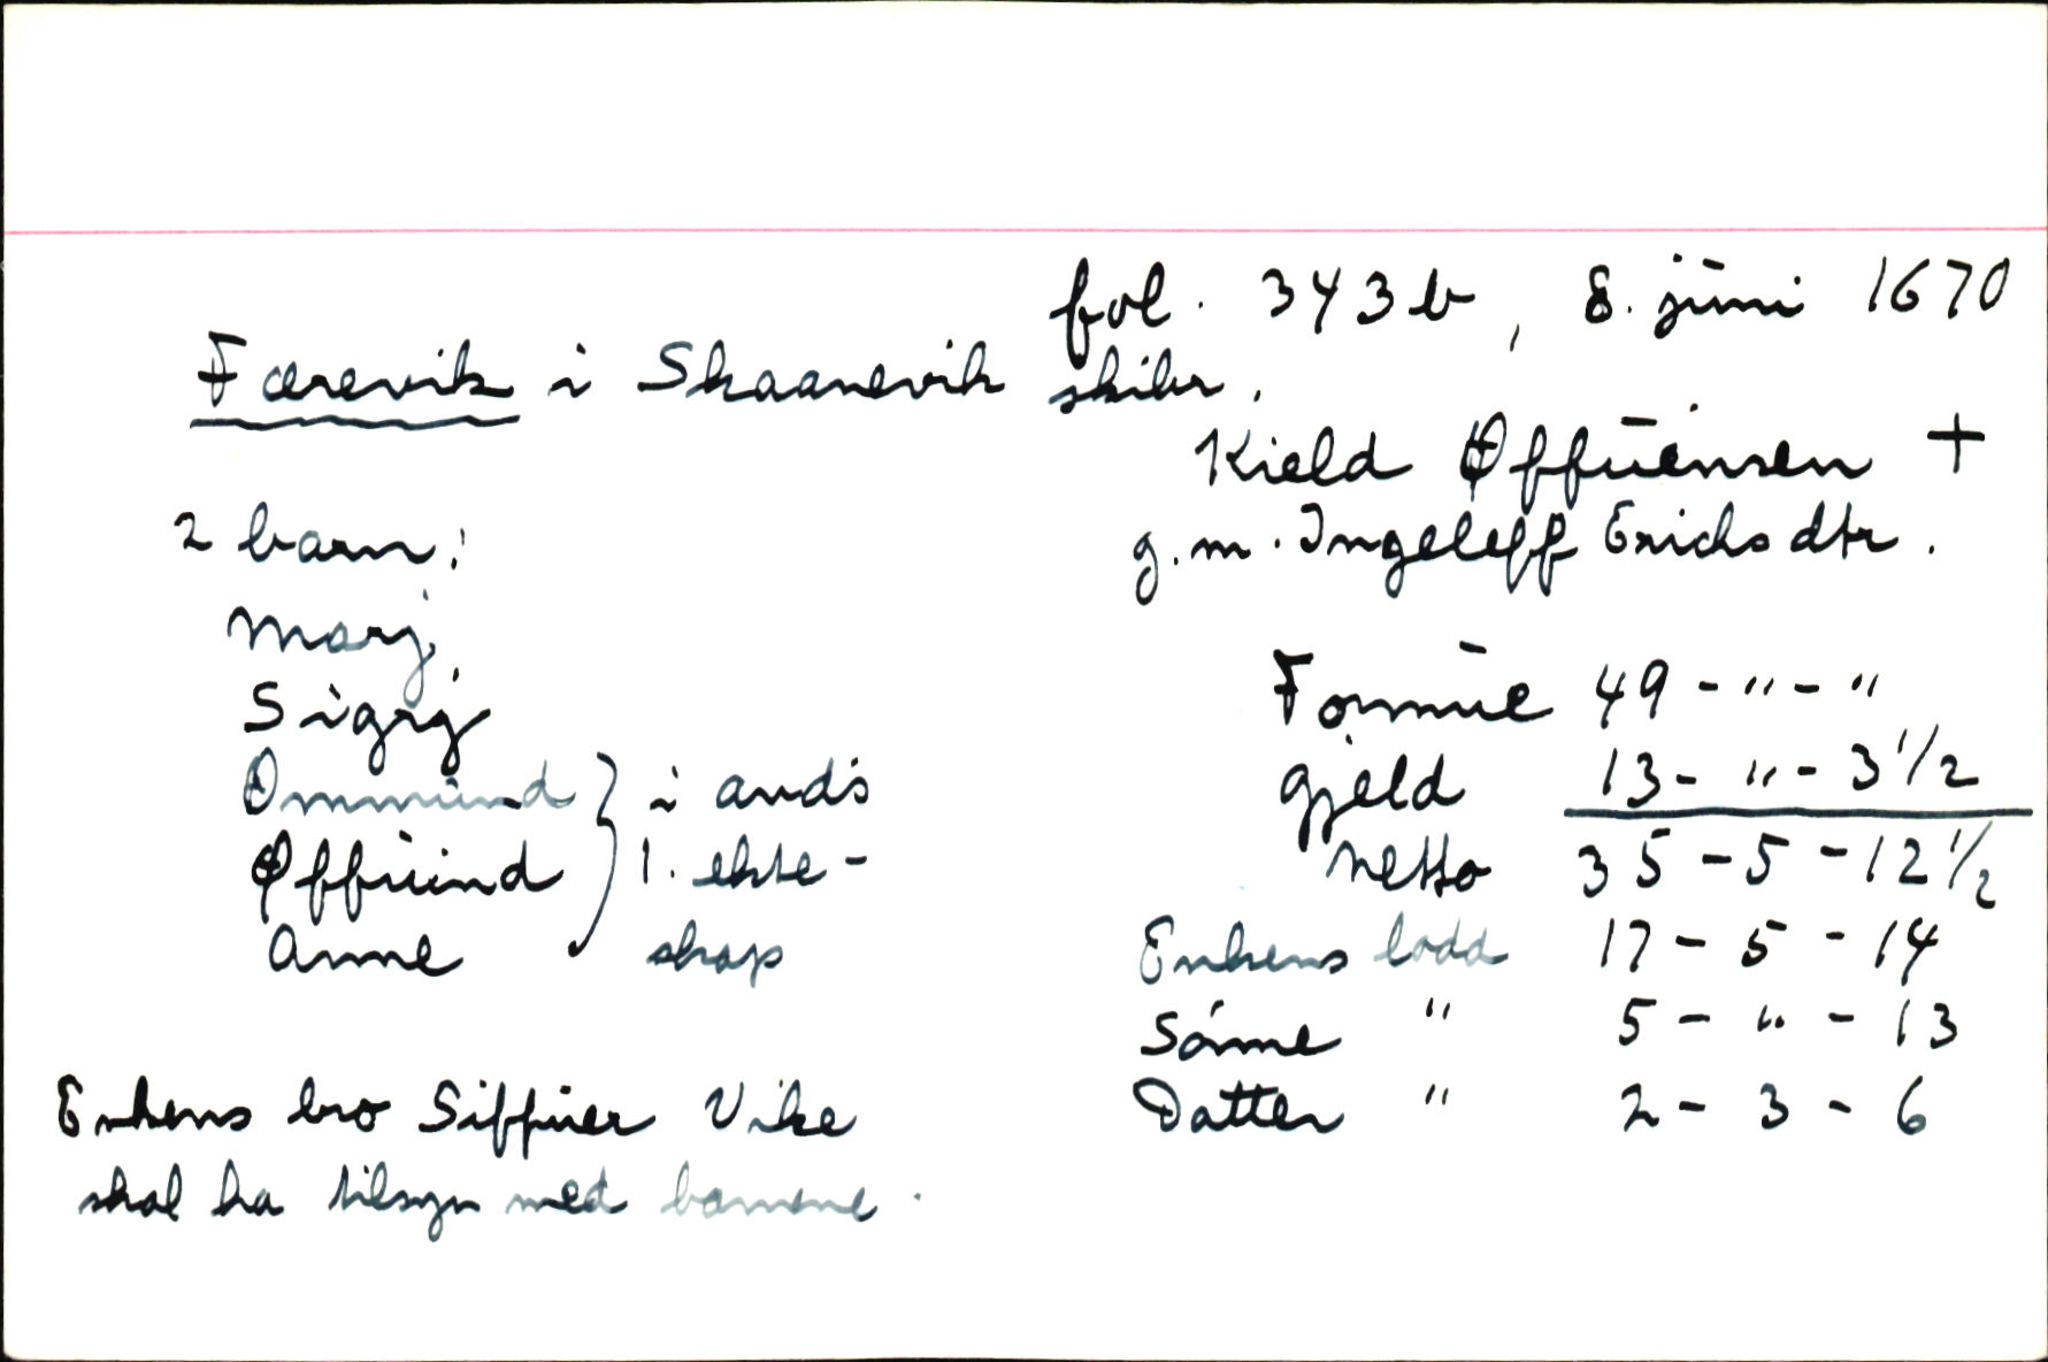 fol. 343b, 8. juni 1670
Færevik i Skaanevik skibr.
Kield Øffuensen +
g.m. Ingeleff Erichsdtr.
2 barn:
Marj,
Sigrj
Ommund } i avd's
Øffuind } 1. ekte-
Anne } skap
Formue 49 - " - "
Gjeld 13 - " - 3 1/2
Netto 35 - 5 - 12 1/2
Enkens lodd 17 - 5 - 14
Sønne " 5 - " - 13
Datter " 2 - 3 - 6
Enkens bro Siffuer Vike
skal ha tilsyn med barnene.